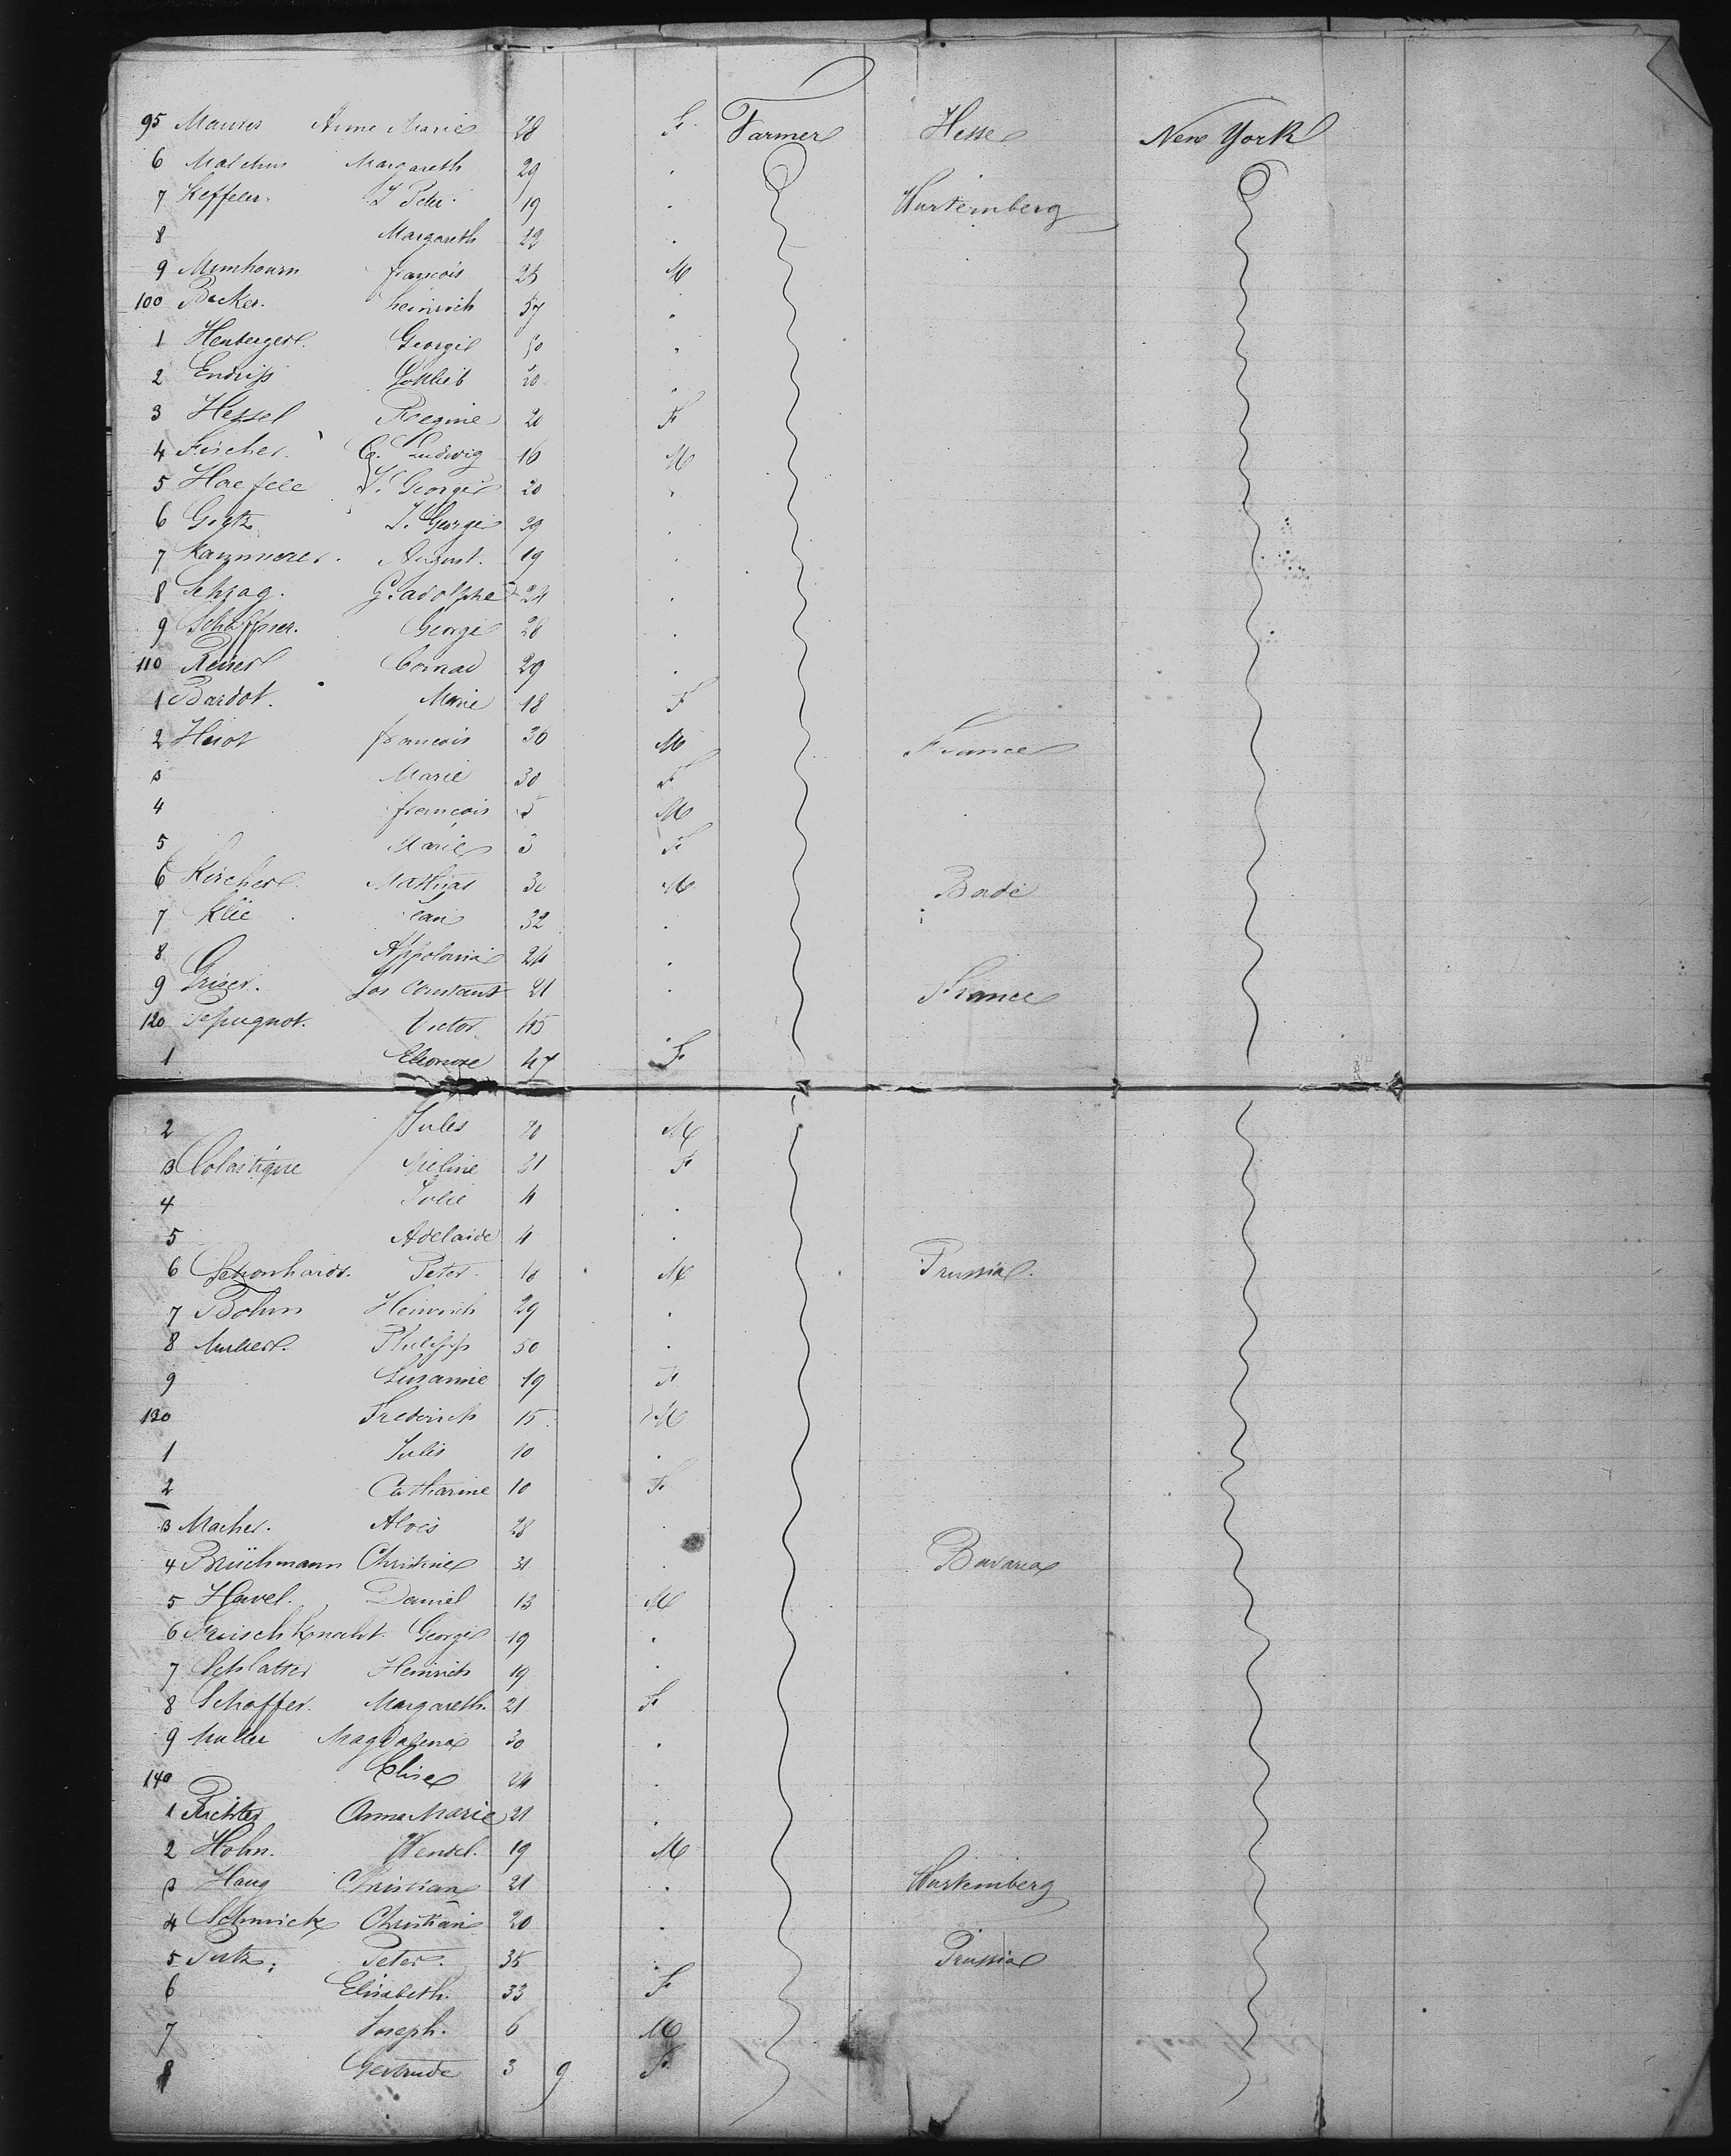 95 Maurer Anne Marie 28 F. Farmer Hesse New York
6 Malchus Margareth 29 .
7 Keffeler. J Peter. 19 . Wurtemberg
8 Margareth 22 .
9 Mumhourn francois 25 M
100 Becker. heinrich 57 .
1 Henberger. George 50 .
2 Endriss Gottlieb 20 .
3 Hessel Regine 20 F
4 Fischer. C. Ludwig 16 M
5 Haefele J. George 20 .
6 Goetz J. George 29 .
7 Kammerer. August. 19 .
8 Schrag. G. adolphe 24 .
9 Schaffner. George 28 .
110 Reiser Conrad 29 .
1 Bardot. Marie 18 F
2 Huot francois 36 M France
3 Marie 30 F
4 francois 5 M
5 Marie 3 F
6 Kircher Mathias 30 M Bade
7 Klie Jean 32 .
8 Appolonia 24 .
9 Griser. Jos Constant 21 . France
120 Pepugnot. Victor 45
1 Eleonore 47 F
2 Jules 20 M
3 Colastique Meline 31 F
4 Julie 4 .
5 Adelaide 4 .
6 Schonhardt. Peter. 18 M Prussia.
7 Bohm Heinrich 29 .
8 Philipp 50 .
9 Susanne 19 F
130 Frederich 15 M
1 Julis 10 .
2 Catharine 10 F
3 Macher. Alois 28 .
4 Brüchmann Christine 31 . Bavaria
5 Havel. Daniel 13 M
6 Frischknecht. George 19 .
7 Schlatter Heinrich 19 .
8 Schaffer. Margareth. 21 F
9 Muller Magdalena 30 .
140 Elise 24 .
1 Richter Anna Marie 21 .
2 Hohn. Wendel. 19 M
3 Haug Christian 21 . Wurtemberg
4 Schmick Christian 20 .
5 Putz. Peter. 35 . Prussia
6 Elisabeth. 33 F
7 Joseph. 6 M
8 Gertrude 3 9 F